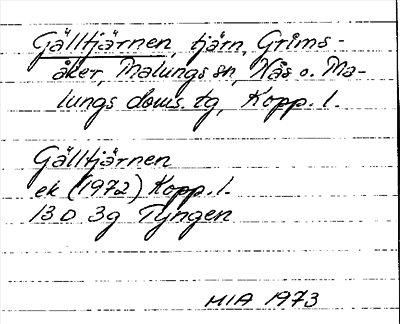 Gälltjärnen, tjärn, Grims-
åker, Malungs sn, Nås o. Ma-
lungs doms. tg, Kopp. l.
Gälltjärnen
ek (1972) Kopp. l.
13 D 3g Tyngen
MIA 1973